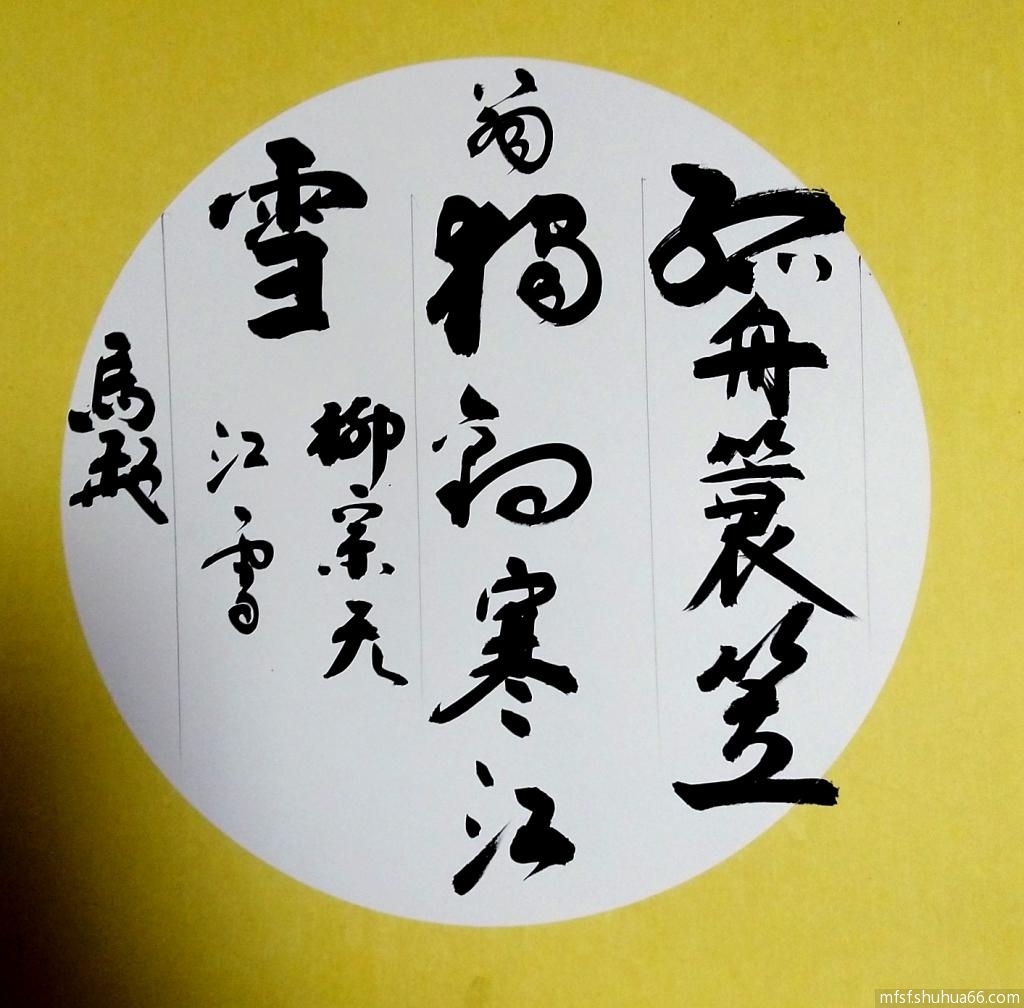 孤舟蓑笠
翁獨釣寒江
雪
柳宗元
江雪
馬
mfsf.shuhua66.com